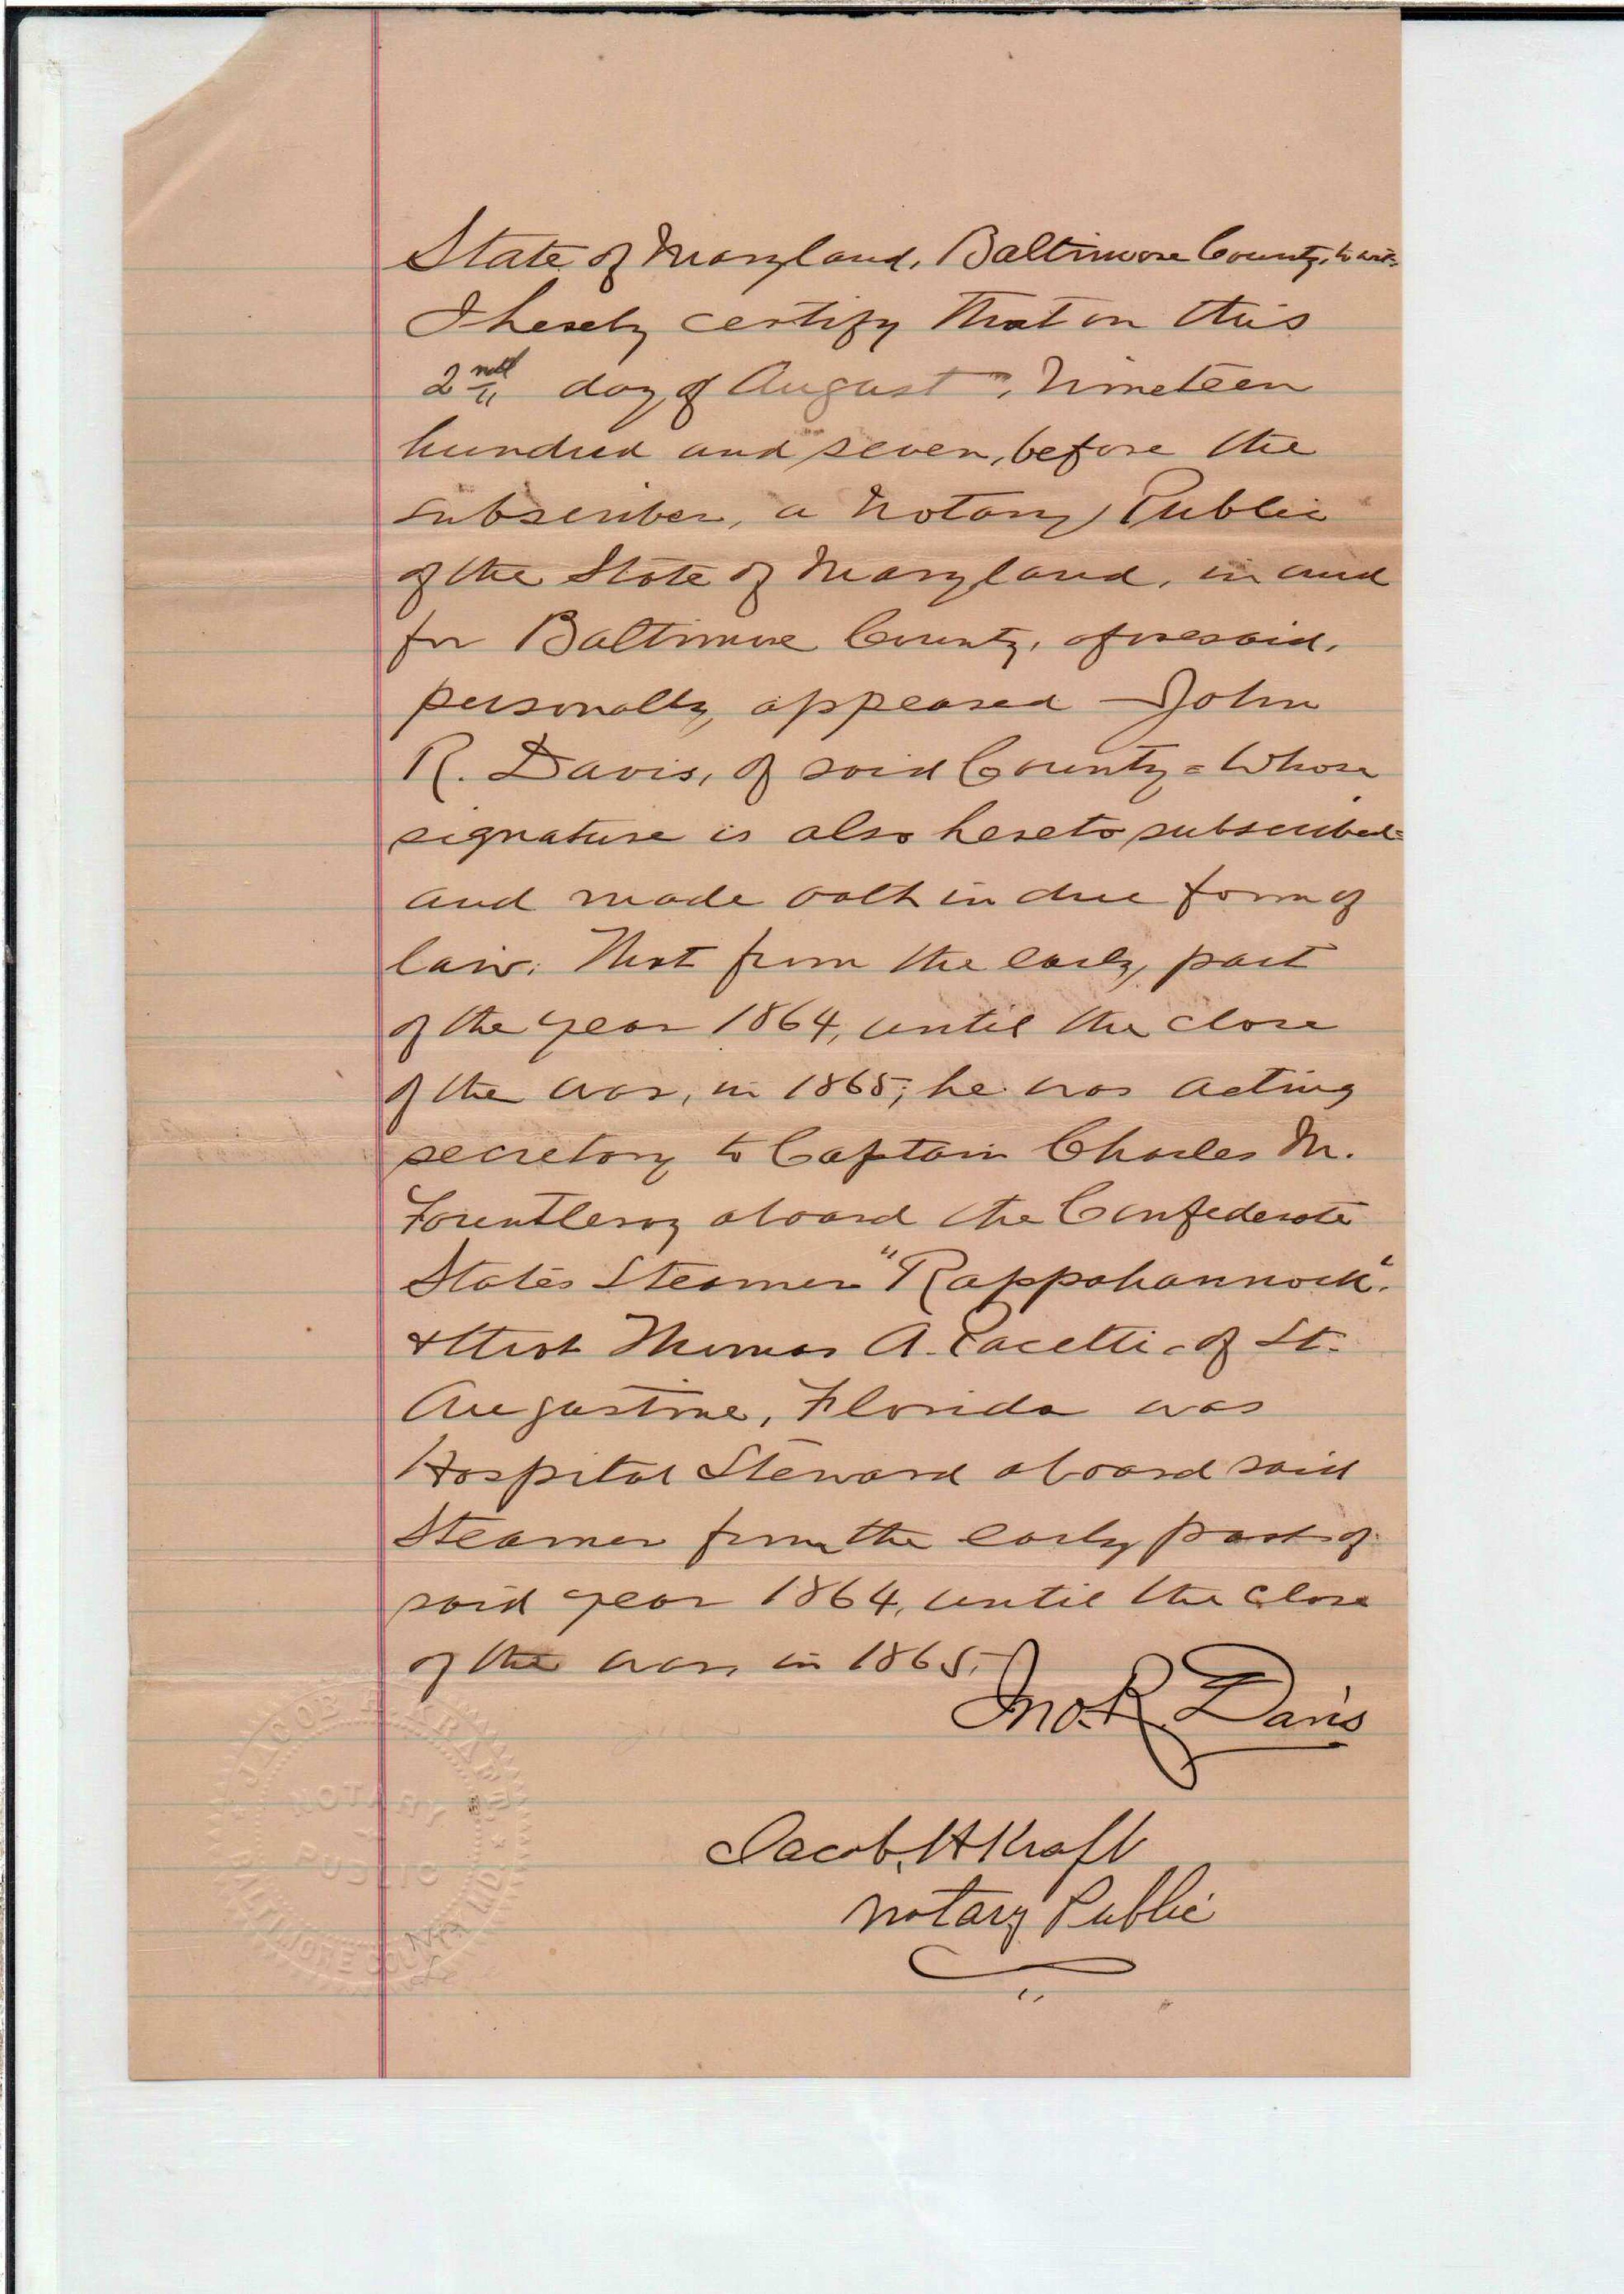 State of Maryland, Baltimore County, to wit:
I hereby certify that on this
2nd day of August, Nineteen
hundred and seven, before the
subscriber, a Notary Public
of the State of Maryland, in and
for Baltimore County, aforesaid,
personally appeared John
R. Davis, of said County = whose
signature is also hereto subscribed =
and made oath in due form of
law: That from the early part
of the year 1864, until the close
of the war, in 1865; he was acting
secretary to Captain Charles M.
Fauntleroy aboard the Confederate
States Steamer "Rappahannock".
& that Thomas A. Pacetti - of St.
Augustine, Florida was
Hospital Steward aboard said
Steamer from the early part of
said year 1864, until the close
of the war, in 1865.
Jno. R. Davis
Jacob H Kraft
Notary Public
JACOB H. KRAFT
NOTARY
PUBLIC
BALTIMORE COUNTY MD.